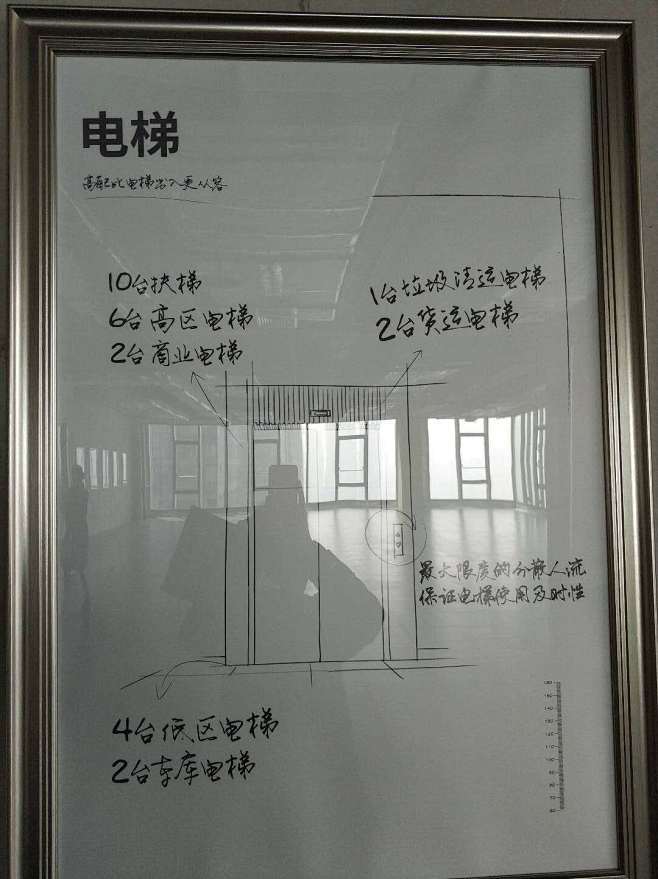 电梯
高配比电梯出入更从容
10台扶梯
6台高区电梯
2台商业电梯
1台垃圾清运电梯
2台货运电梯
最大限度的分散人流
保证电梯使用及时性
4台低区电梯
2台车库电梯